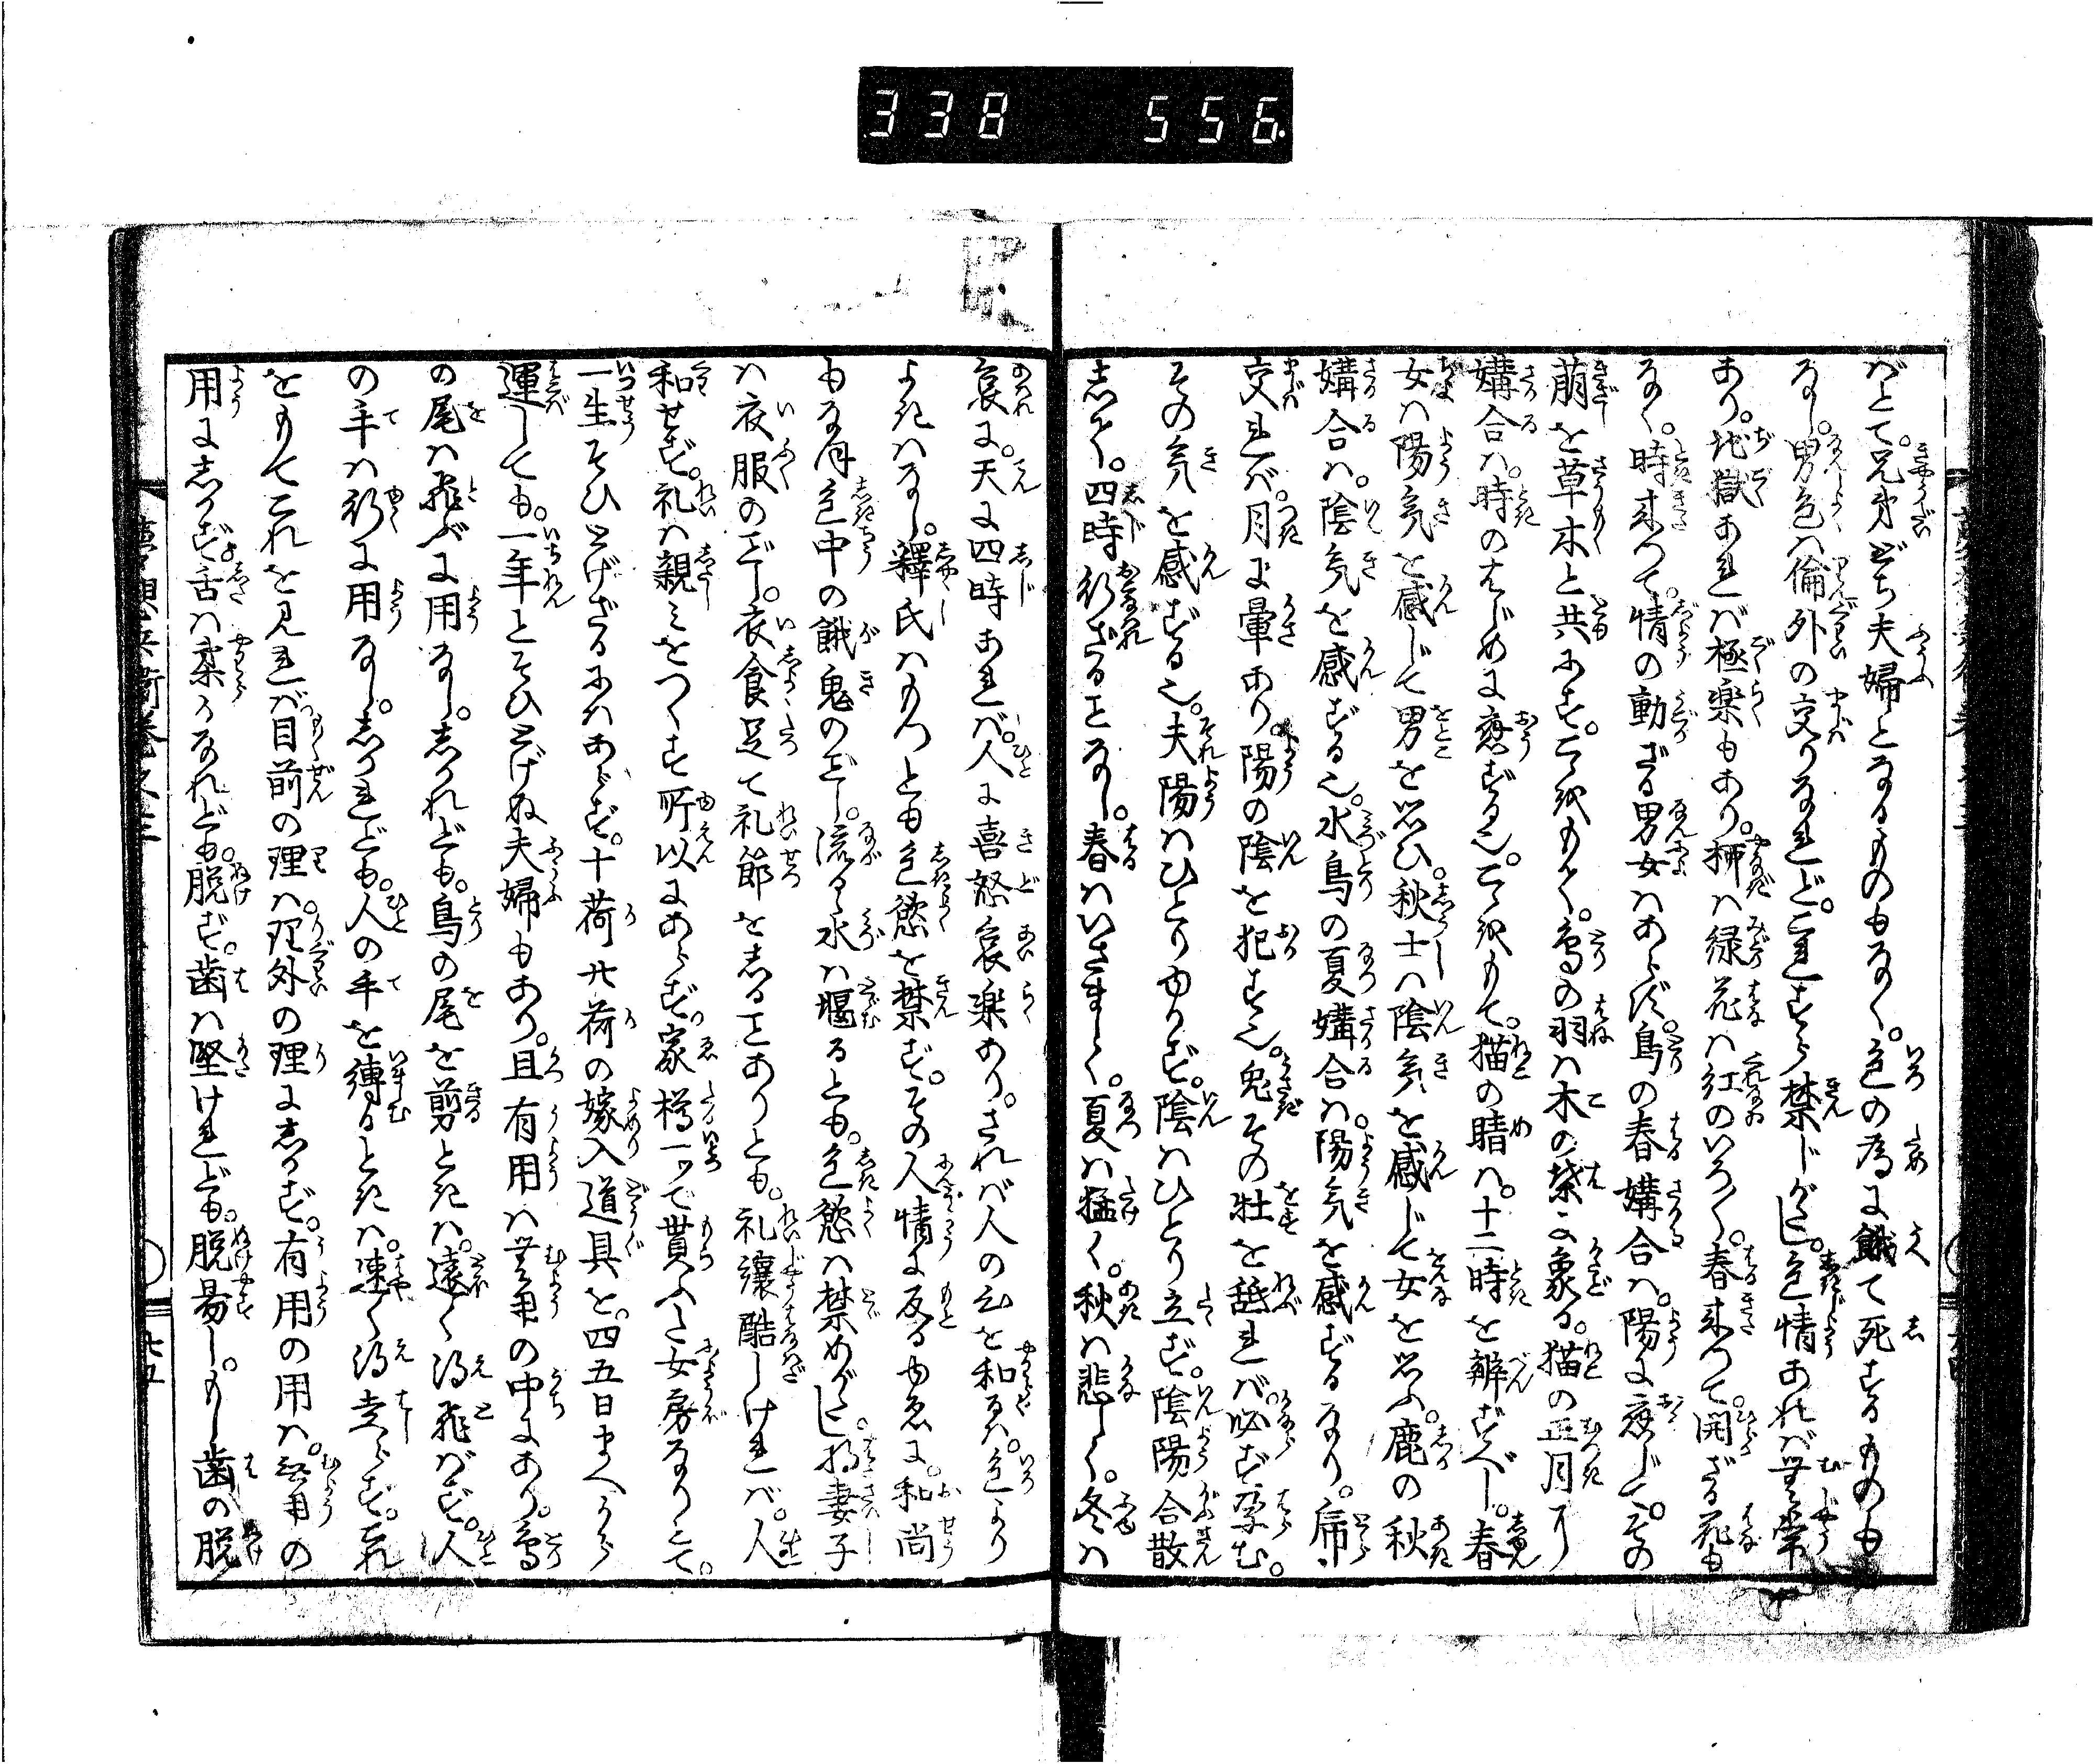 338 556
ばとて。兄弟どち夫婦となるものもなく。色の為に餓て死するものも
なし。男色は倫外の交りなれど。これすら禁じがたし。色情あれば無常
あり。地獄あれば極楽もあり。柳は緑花は紅のいろ〱。春来つて。開ざる花も
なく。時来つて。情の動ざる男女はあらず。鳥の春媾合は。陽に応じて。その
萌を草木と共にす。こゝをもて。鳥の羽は木の葉に象る。猫の正月より
媾合は。時のはじめに応ずる也。こゝをもて。猫の睛は。十二時を辨ずべし。春
女は陽気を感じて男を思ひ。秋士は陰気を感じて女を思ふ。鹿の秋
媾合は。陰気を感ずる也。水鳥の夏媾合は。陽気を感ずるなり。虎
交れば。月に暈あり。陽の陰を犯す也。兎その牡を舐れば。必ず孕む。
その気を感ずる也。夫陽はひとりゆかず。陰はひとり立ず。陰陽合散
して。四時行ざることなし。春はいさましく。夏は猛く。秋は悲しく。冬は
哀に。天に四時あれば。人に喜怒哀楽あり。されば人の心を和るは。色より
よきはなし。釋氏はもつとも色慾を禁ず。その人情に反るゆゑに。和尚
もなほ色中の餓鬼のごとし。流るゝ水は堰るとも。色慾は禁めがたし。妻子
は衣服のごとし。衣食足て礼節をしることありとも。礼讓酷しければ。人
和せず。礼は親しみをつくす所以にあらず。家樽一ツで貰ふた女房なりとて。
一生そひとげざるにはあらず。十荷廿荷の嫁入道具を。四五日まへから
運しても。一年とそひとげぬ夫婦もあり。且有用は無用の中にあり。鳥
の尾は飛ぶに用なし。しかれども。鳥の尾を剪ときは。遠く得飛ばず。人
の手は行に用なし。しかれども。人の手を縛るときは。速く得走らず。これ
をもてこれを見れば目前の理は。理外の理にしかず。有用の用は。無用の
用にしかず舌は柔かなれども。脱ず。歯は堅けれども。脱易し。もし歯の脱